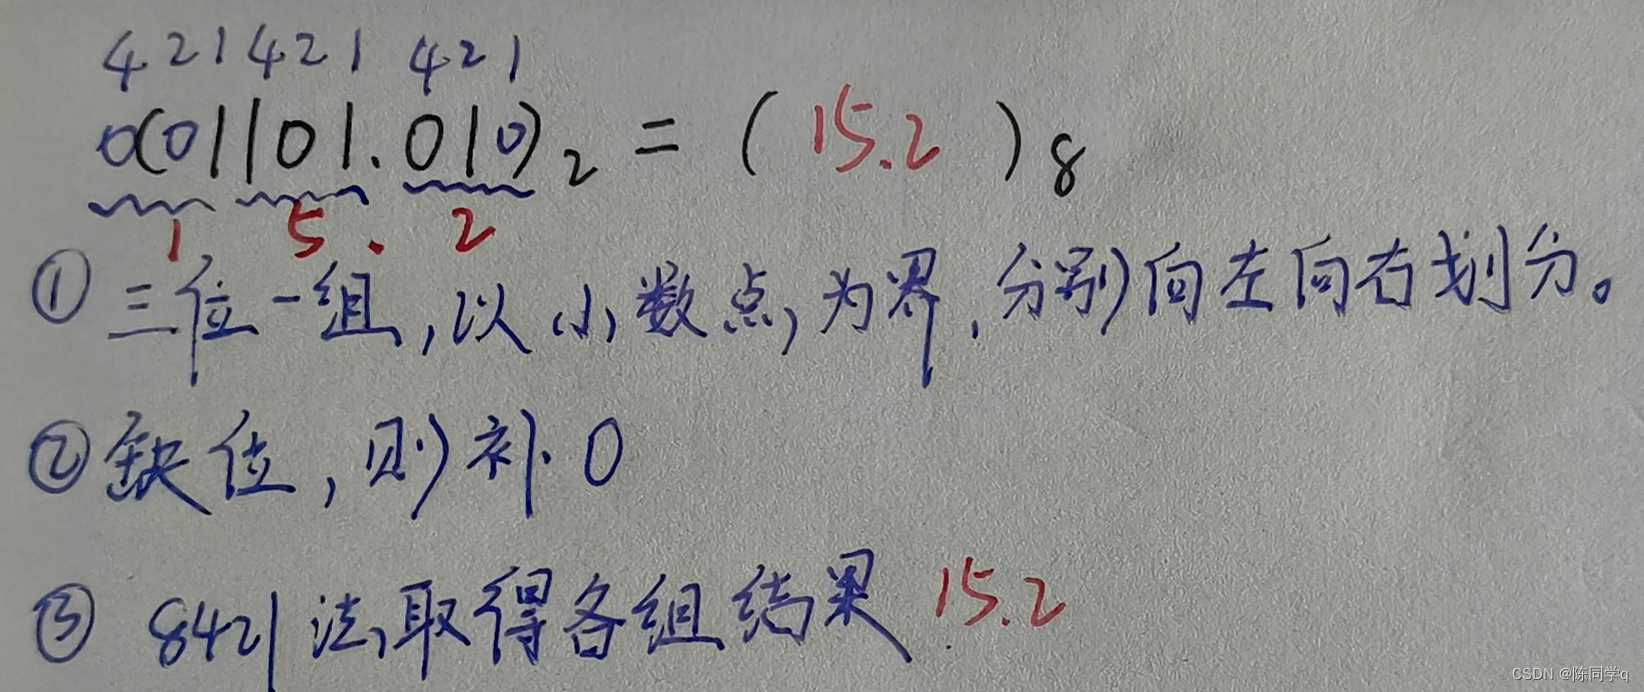 421421 421
0(01101.010)₂ = (15.2)₈
1 5 . 2
① 三位一组,以小数点为界,分别向左向右划分。
② 缺位,则补0
③ 8421法,取得各组结果 15.2
CSDN @陈同学q